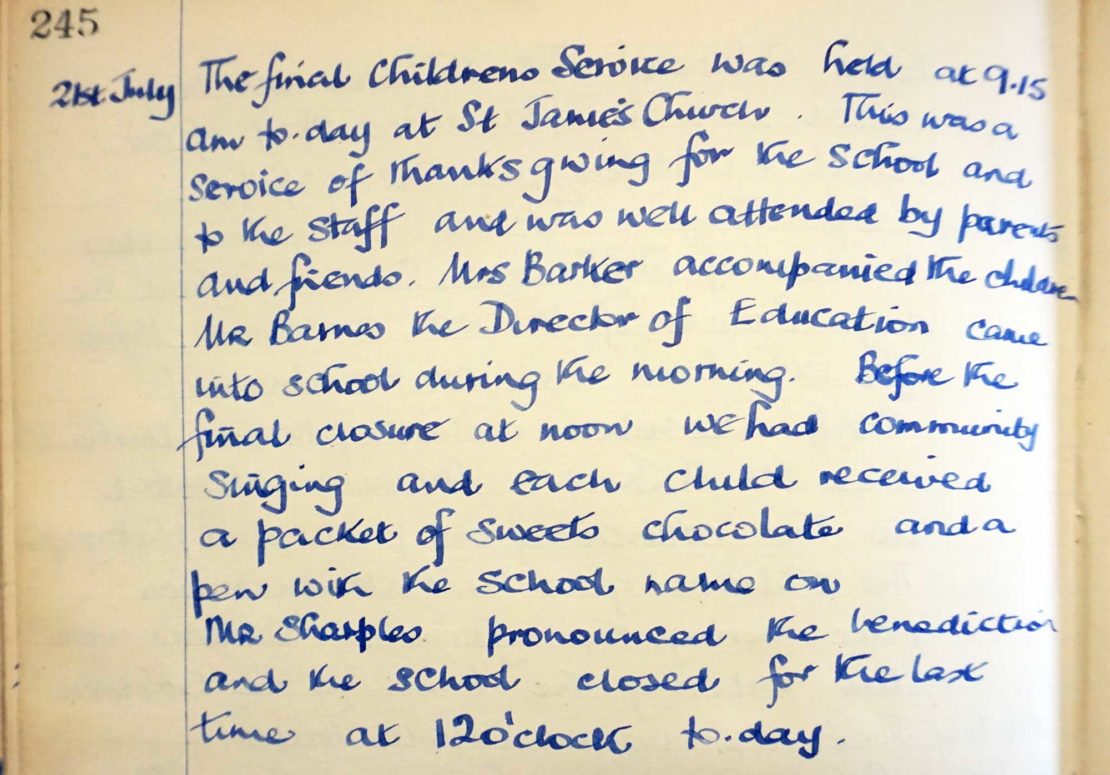 245
21st July The final Childrens Service was held at 9.15
am to.day at St James's Church. This was a
service of thanksgiving for the School and
to the Staff and was well attended by parents
and friends. Mrs Barker accompanied the children
Mr Barnes the Director of Education came
into school during the morning. Before the
final closure at noon we had community
singing and each child received
a packet of sweets chocolate and a
pen with the school name on
Mr Sharples pronounced the benediction
and the school closed for the last
time at 12o'clock to.day.